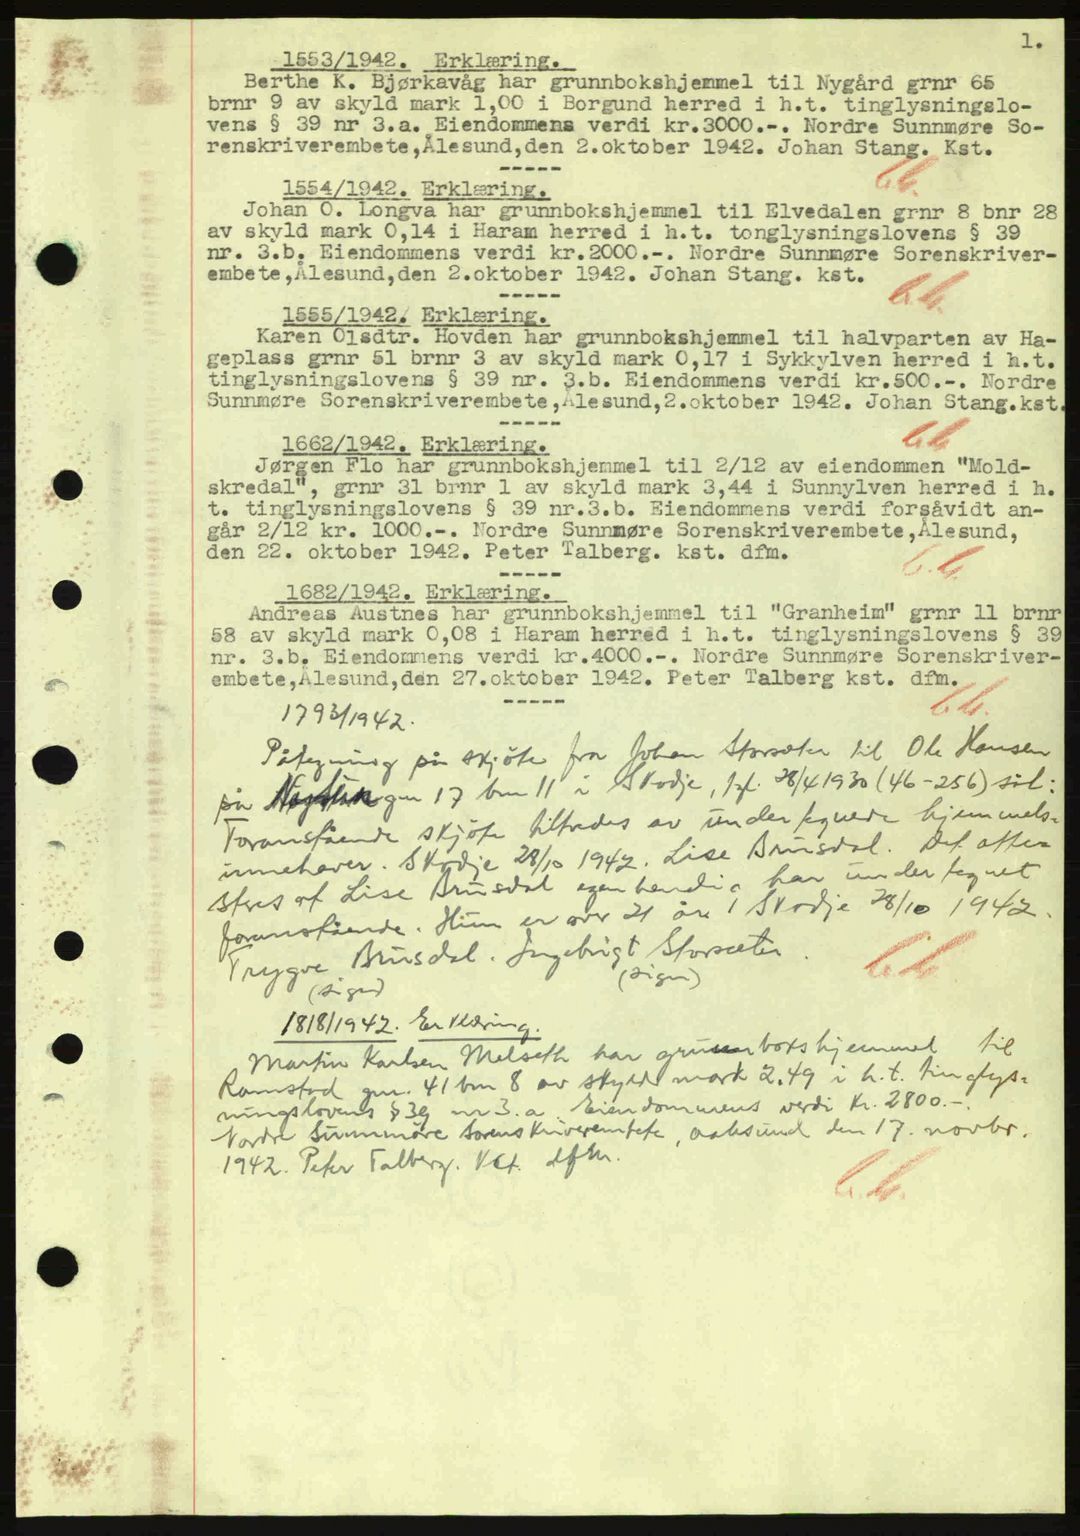 1.
1553/1942. Erklæring.
Berthe K. Bjørkavåg har grunnbokshjemmel til Nygård grnr 65
brnr 9 av skyld mark 1,00 i Borgund herred i h.t. tinglysningslo-
vens § 39 nr 3.a. Eiendommens verdi kr.3000.-. Nordre Sunnmøre So-
renskriverembete,Ålesund,den 2.oktober 1942. Johan Stang. Kst.
-----
1554/1942. Erklæring.
Johan O. Longva har grunnbokshjemmel til Elvedalen grnr 8 bnr 28
av skyld mark 0,14 i Haram herred i h.t. tonglysningslovens § 39
nr. 3.b. Eiendommens verdi kr.2000.-. Nordre Sunnmøre Sorenskriver-
embete,Ålesund,den 2.oktober 1942. Johan Stang. kst.
-----
1555/1942. Erklæring.
Karen Olsdtr. Hovden har grunnbokshjemmel til halvparten av Ha-
geplass grnr 51 brnr 3 av skyld mark 0,17 i Sykkylven herred i h.t.
tinglysningslovens § 39 nr. 3.b. Eiendommens verdi kr.500.-. Nordre
Sunnmøre Sorenskriverembete,Ålesund,2.oktober 1942. Johan Stang.kst.
-----
1662/1942. Erklæring.
Jørgen Flo har grunnbokshjemmel til 2/12 av eiendommen "Mold-
skredal", grnr 31 brnr 1 av skyld mark 3,44 i Sunnylven herred i h.
t. tinglysningslovens § 39 nr.3.b. Eiendommens verdi forsåvidt an-
går 2/12 kr. 1000.-. Nordre Sunnmøre Sorenskriverembete,Ålesund,
den 22. oktober 1942. Peter Talberg. kst. dfm.
-----
1682/1942. Erklæring.
Andreas Austnes har grunnbokshjemmel til "Granheim" grnr 11 brnr
58 av skyld mark 0,08 i Haram herred i h.t. tinglysningslovens § 39
nr. 3.b. Eiendommens verdi kr.4000.-. Nordre Sunnmøre Sorenskriver-
embete,Ålesund,den 27.oktober 1942. Peter Talberg kst. dfm.
-----
1793/1942.
Påtegning på skjøte fra Johan Storsæter til Ole Hansen
på gnr 17 bnr 11 i Skodje, 28/4 1930 (46-256) sål:
Foranstående skjøte tiltredes av undertegnede hjemmels-
innehaver. Skodje 28/10 1942. Lise Brusdal. Det attes-
steres at Lise Brusdal egenhendig har undertegnet
foranstående. Hun er over 21 år. Skodje 28/10 1942.
Trygve Brusdal. Ingebrigt Storsæter.
(sign) (sign)
1818/1942. Erklæring.
Martin Karlsen Melseth har grunnbokshjemmel til
Ramstad gnr. 41 bnr 8 av skyld mark 2.49 i h.t. tinglys-
ningslovens § 39 nr 3.a. Eiendommens verdi kr. 2800.-.
Nordre Sunnmøre Sorenskriverembete, Aalesund den 17. novbr.
1942. Peter Talberg. kst. dfm.